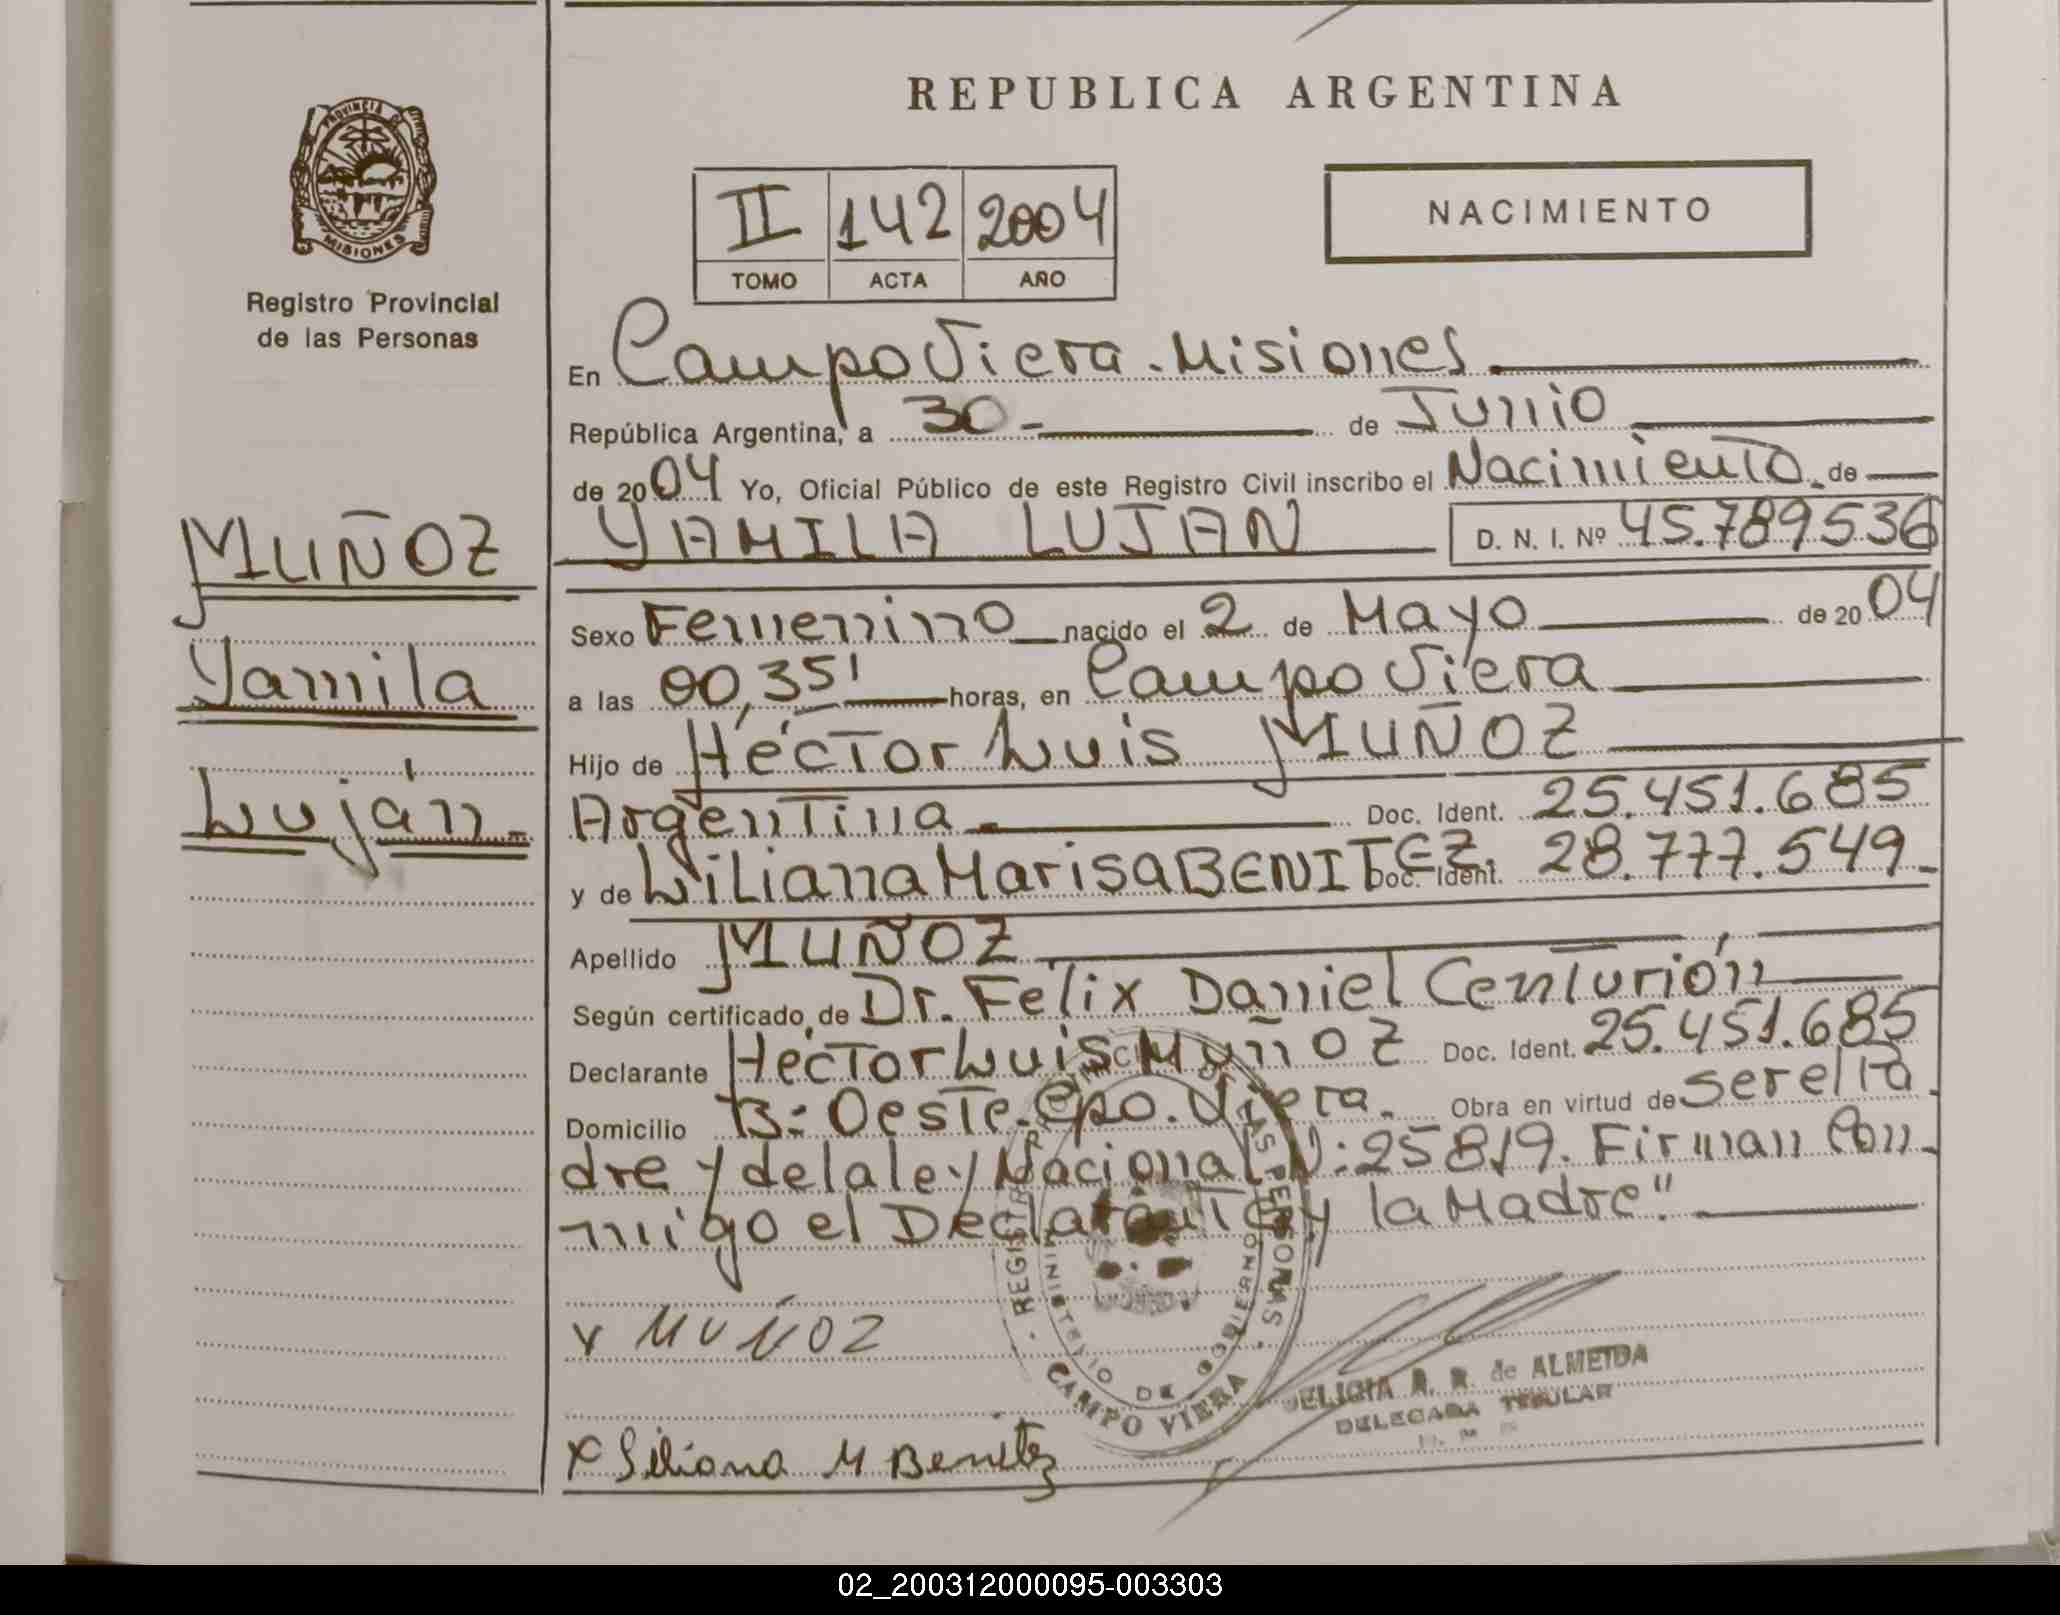 REPUBLICA ARGENTINA
PROVINCIA DE
MISIONES
Registro Provincial
de las Personas
II 142 2004
TOMO ACTA AÑO
NACIMIENTO
MUÑOZ
Yamila
Luján.
En Campo Viera. Misiones.
República Argentina, a 30- de Junio
de 2004 Yo, Oficial Público de este Registro Civil inscribo el Nacimiento. de
YAMILA LUJAN D. N. I. Nº 45.789536
Sexo Femenino nacido el 2 de Mayo de 2004
a las 00,35' horas, en Campo Viera
Hijo de Héctor Luis MUÑOZ
Argentina. Doc. Ident. 25.451.685
y de Liliana Marisa BENITEZ. Doc. Ident. 28.777.549-
Apellido MUÑOZ
Según certificado de Dr. Felix Daniel Centurión
Declarante Héctor Luis Muñoz Doc. Ident. 25.451.685
Domicilio B: Oeste. Cpo. Viera. Obra en virtud de ser el Pa
dre y de la ley Nacional N: 25819. Firman Con-
migo el Declarante y la Madre".
x MUÑOZ
x Liliana M Benitez
REGISTRO PROVINCIAL DE LAS PERSONAS
MINISTERIO DE GOBIERNO
CAMPO VIERA
DELICIA R. R. de ALMEIDA
DELEGADA TITULAR
02_200312000095-003303